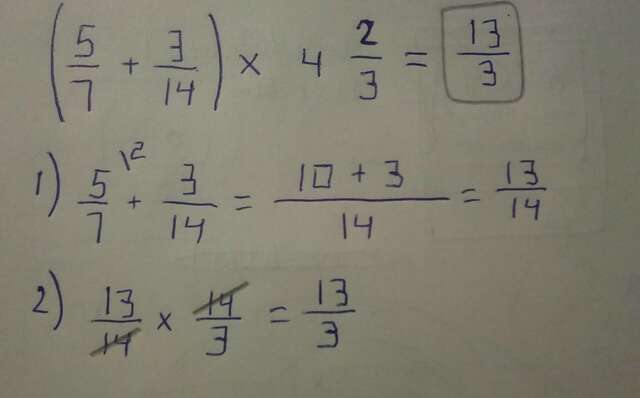 (5/7 + 3/14) × 4 2/3 = 13/3
1) 5/7 \2 + 3/14 = 10 + 3/14 = 13/14
2) 13/14 × 14/3 = 13/3